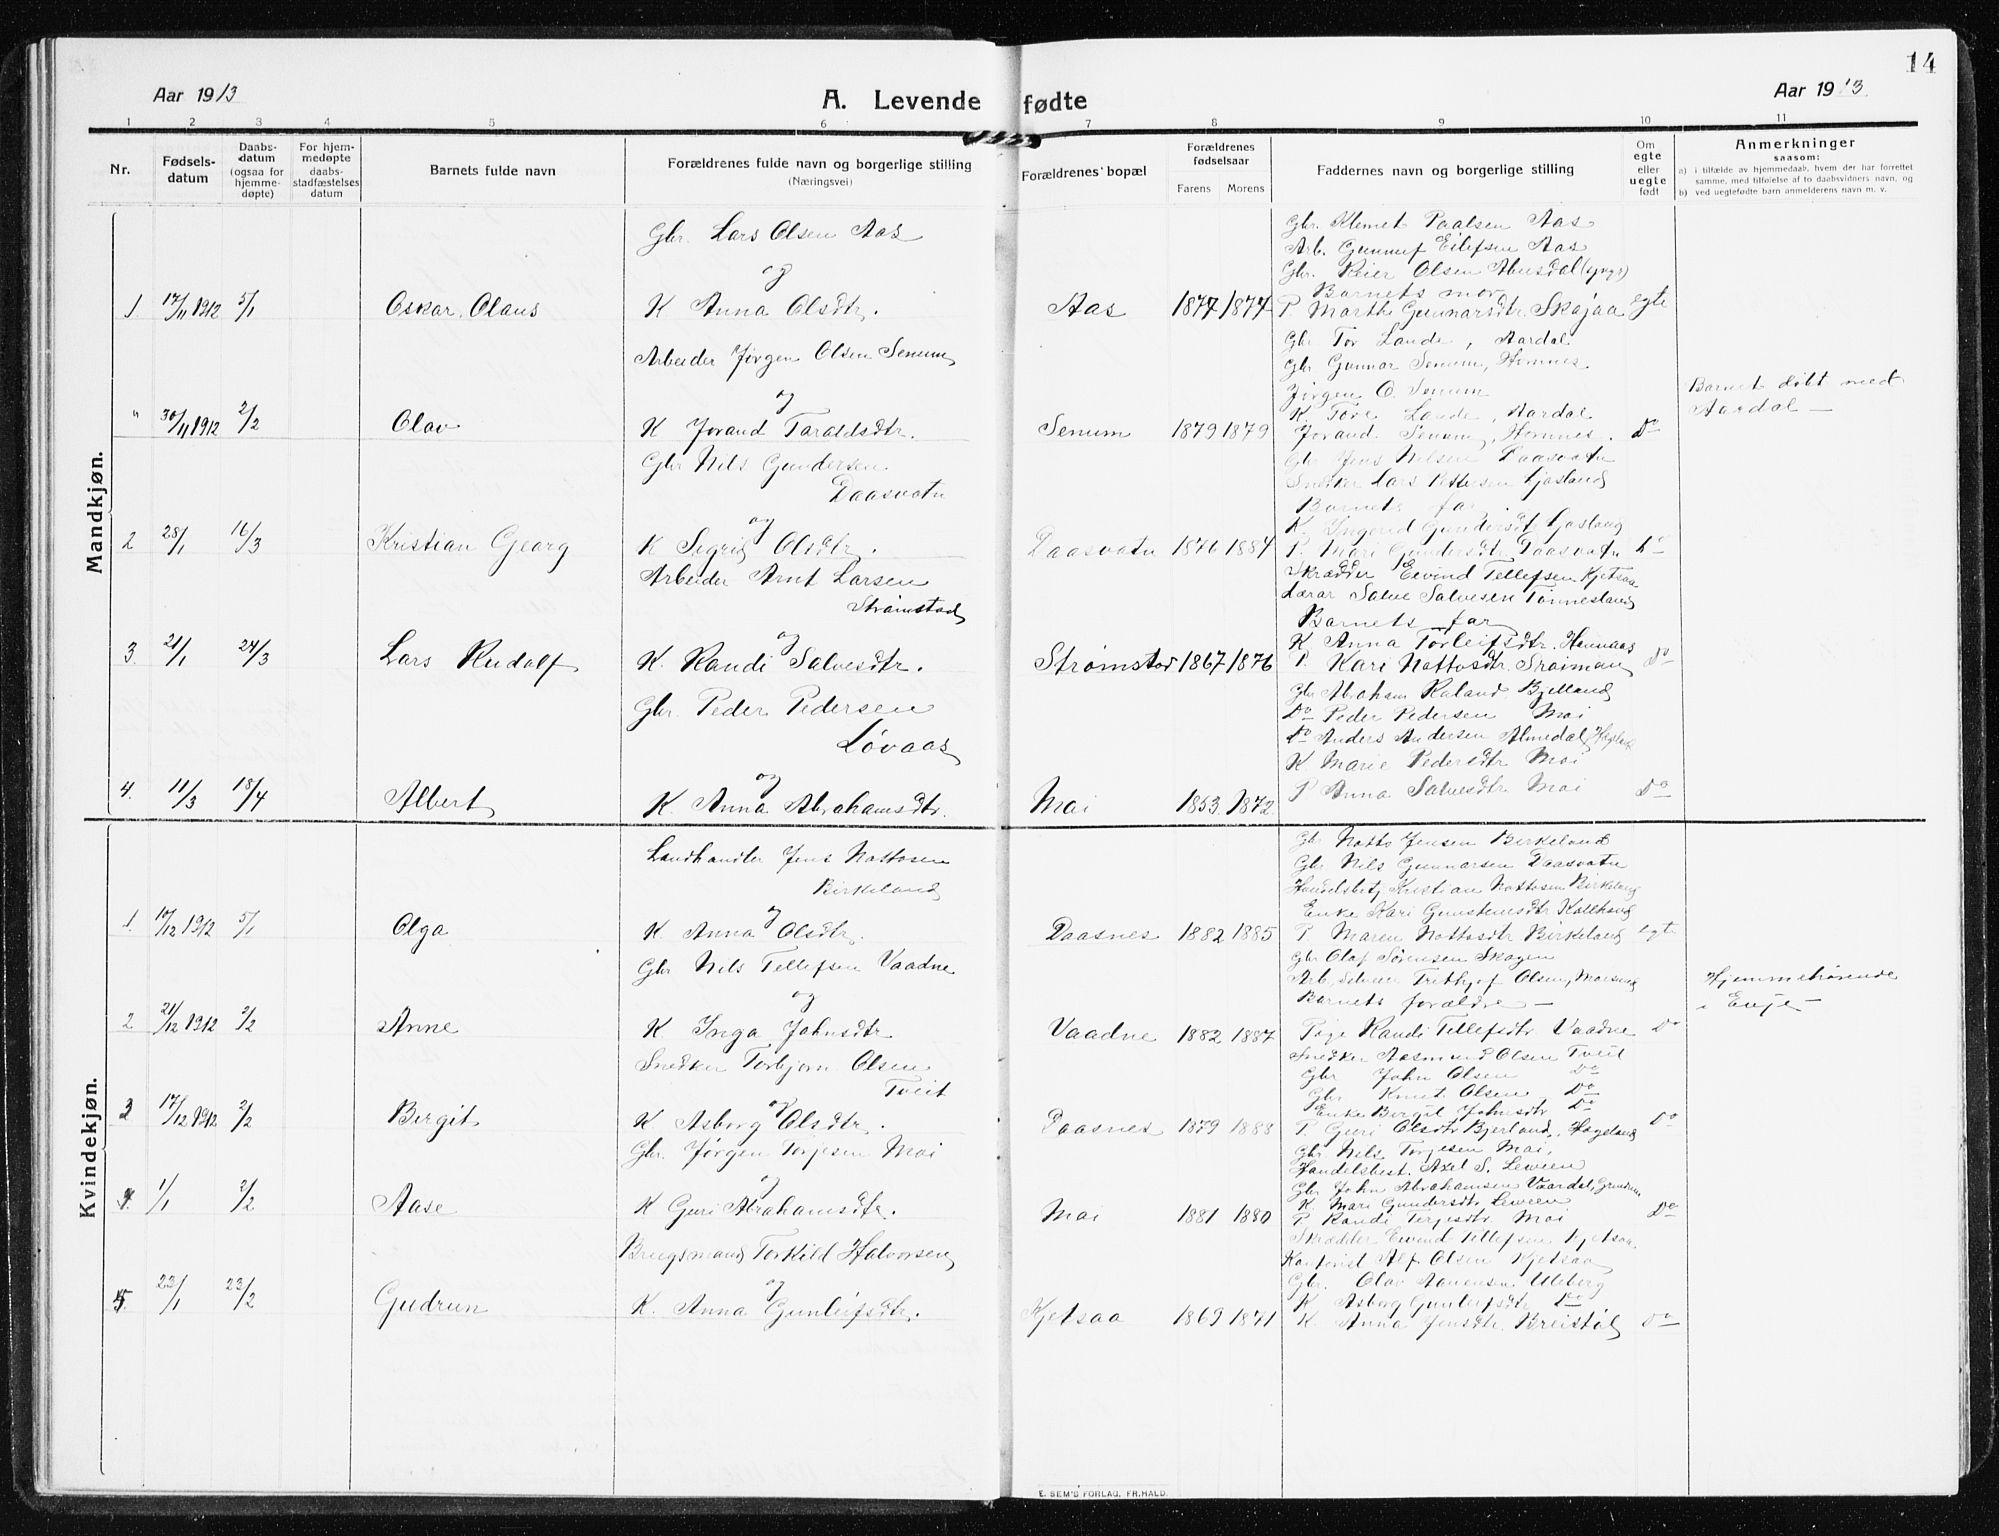 14
Aar 1913
A. Levende fødte
Aar 1913
1 2 3 4 5 6 7 8 9 10 11
Nr.
Fødsels-
datum
Daabs-
datum
(ogsaa for
hjemme-
døpte)
For hjem-
medøpte
daabs-
stadfæstelses
datum
Barnets fulde navn
Forældrenes fulde navn og borgerlige stilling
(Næringsvei)
Forældrenes' bopæl
Forældrenes
fødselsaar
Farens Morens
Faddernes navn og borgerlige stilling
Om
egte
eller
uegte
født
Anmerkninger
saasom:
a) i tilfælde av hjemmedaab, hvem der har forrettet
samme, med tilføielse af to daabsvidners navn, og
b) ved uegtefødte barn anmelderens navn m. v.
Mandkjøn.
Gbr. Lars Olsen Aas
og
1 17/11 1912 5/1 Oskar Olaus K Anna Olsdtr. Aas 1877 1874
Gbr. Klemet Paalsen Aas
Arb. Gunnuf Eilefsen Aas
Gbr. Reier Olsen Abusdal
Barnets mor
P. Marthe Gunnarsdtr Skajaa egte
Arbeider Jørgen Olsen Senum
og
" 30/11 1912 2/2 Olav K Jorand Taraldsdtr. Senum 1879 1879
Gbr Tor Lande, Aardal
Gbr Gunnar Senum, Hornnes
Jørgen O. Senum
K Tore Lande, Aardal
Jorand Senum, Hornnes. Do
Barnet døbt med
Aardal —
Gbr Nils Gundersen
Daasvatn
og
2 28/1 16/3 Kristian Georg K Sigrid Olsdtr. Daasvatn 1876 1884
Gbr Jens Nilsen Daasvatn
Snedker Lars Pettersen
Barnets far
K. Ingerid Gundersdtr
P. Mari Gundersdtr Daasvatn Do
Arbeider Arnt Larsen
Strømstad
og
3 21/1 24/3 Lars Rudolf K. Randi Salvesdtr. Strømstad 1867 1876
Skrædder Eivind Tellefsen Kjetsaa
Lærar Salve Salvesen Tønnesland
Barnets far
K Anna Torleifsdtr. Hannaas
P. Kari Nottosdtr. Do
Gbr. Peder Pedersen
Løvaas
og
4. 11/3 18/4 Albert K. Anna Abrahamsdtr. Mai 1853 1872
Gbr Abraham Raland Bjelland
Do Peder Pedersen Mai
Do Anders Andersen Almedal
K Marie Pedersdtr Mai
P Anna Salvesdtr Mai Do
Kvindekjøn.
Landhandler Jens Nottosen
Birkeland
og
1. 10/12 1912 5/1 Olga K. Anna Olsdtr. Daasnes 1882 1885
Gbr Notto Jensen Birkeland
Gbr Nils Gunnarsen Daasvatn
Handelsbetj Kristian Nottosen Birkeland
Enke Kari
P. Maren Nottosdtr Birkeland egte
Gbr Nils Tellefsen Vaadne
og
2 21/12 1912 2/2 Anne K. Inga Johnsdtr Vaadne 1882 1887
Gbr Olaf Sørensen Skagen
Olsen,
Barnets forældre —
Pige Randi Tellefsdtr Vaadne Do
Hjemmehørende
i Evje —
Snedker Torbjørn Olsen
Tveit
og
3 17/12 1912 2/2 Bergit K Asborg Olsdtr. Daasnes 1879 1888
Snedker Aasmund Olsen Tveit
Gbr John Olsen Do
Gbr Knut Olsen Do
Enke Bergit Johnsdtr Do
P. Guri Olsdtr Bjorland, Hægeland Do
Gbr. Jørgen Torjesen Mai
og
4 1/1 2/2 Aase K Guri Abrahamsdtr. Mai 1881 1880
Gbr Nils Torjesen Mai.
Handelsbest. Axel S. Leween
Gbr John Abrahamsen Vaardal,
K. Mari Gundersdtr Leween
P. Randi Terjesdtr Mai Do
Brugsmand Torkild Halvorsen
og
5 23/1 23/2 Gudrun K. Anna Gunleifsdtr. Kjetsaa 1869 1871
Skrædder Eivind Tellefsen Kjetsaa
Kontorist Alf Olsen Kjetsaa
Gbr. Olav Aanensen Uleberg
K. Asborg Gunleifsdtr Do
K. Anna Jensdtr. Breistøl Do
E. SEM'S FORLAG, FR.HALD.